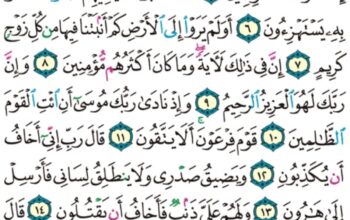 بِهِۦ يَسْتَهْزِءُونَ ٦ أَوَلَمْ يَرَوْا۟ إِلَى ٱلْأَرْضِ كَمْ أَنۢبَتْنَا فِيهَا مِن كُلِّ زَوْجٍ
كَرِيمٍ ٧ إِنَّ فِى ذَٰلِكَ لَءَايَةً ۖ وَمَا كَانَ أَكْثَرُهُم مُّؤْمِنِينَ ٨ وَإِنَّ
رَبَّكَ لَهُوَ ٱلْعَزِيزُ ٱلرَّحِيمُ ٩ وَإِذْ نَادَىٰ رَبُّكَ مُوسَىٰٓ أَنِ ٱئْتِ ٱلْقَوْمَ
ٱلظَّـٰلِمِينَ ١٠ قَوْمَ فِرْعَوْنَ ۚ أَلَا يَتَّقُونَ ١١ قَالَ رَبِّ إِنِّىٓ أَخَافُ
أَن يُكَذِّبُونِ ١٢ وَيَضِيقُ صَدْرِى وَلَا يَنطَلِقُ لِسَانِى فَأَرْسِلْ
إِلَىٰ هَـٰرُونَ ١٣ وَلَهُمْ عَلَىَّ ذَنۢبٌ فَأَخَافُ أَن يَقْتُلُونِ ١٤ قَالَ